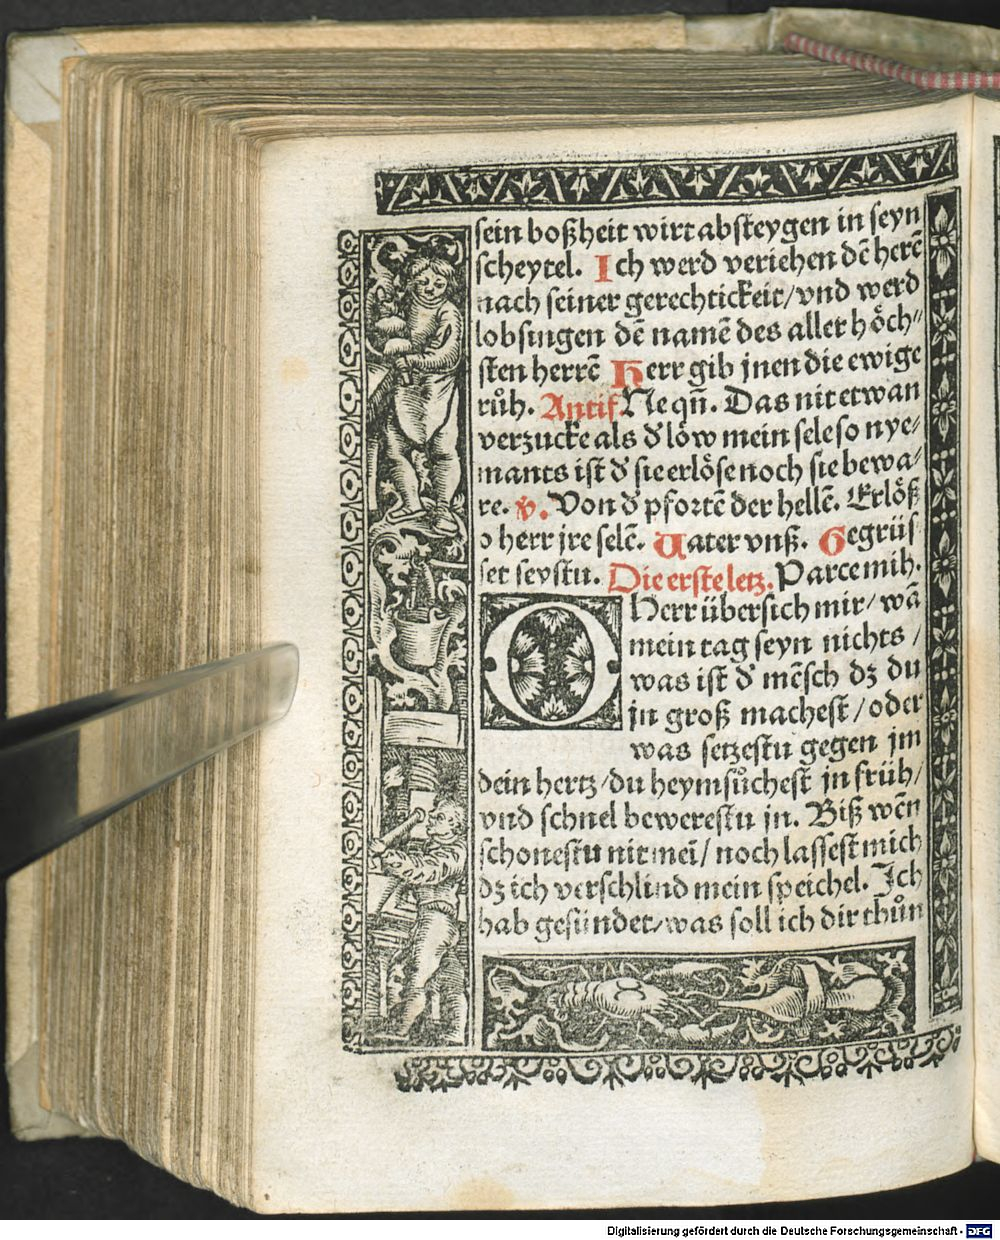 sein boßheit wirt absteygen in seyn
scheytel. Ich werd veriehen dē herē
nach seiner gerechtickeit/vnd werd
lobsingen dē namē des aller hȯch⸗
sten herrē Herr gib jnen die ewige
růh. Antif. Ne qn̄. Das nit etwan
verzucke als d' lȯw mein sele so nye⸗
mants ist d' sie erlȯse noch sie bewa⸗
re. v̇. Von d' pfortē der hellē. Erlȯß
o herr jre selē. Vater vnß. Gegrüs
set seystu. Die erste letz. Parce mih.
O Herr übersich mir/wā
mein tag seyn nichts /
was ist d' mēsch dz du
jn groß machest/oder
was setzestu gegen jm
dein hertz/du heymsůchest jn früh/
vnd schnel bewerestu jn. Biß wēn
schonestu nit mei/noch lassest mich
dz ich verschlind mein speichel. Ich
hab gesündet/was soll ich dir thůn
Digitalisierung gefördert durch die Deutsche Forschungsgemeinschaft - DFG